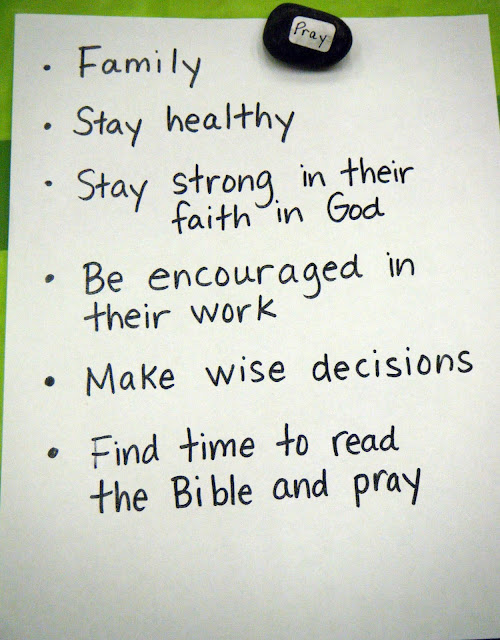 Pray
• Family
• Stay healthy
• Stay strong in their
faith in God
• Be encouraged in
their work
• Make wise decisions
• Find time to read
the Bible and pray